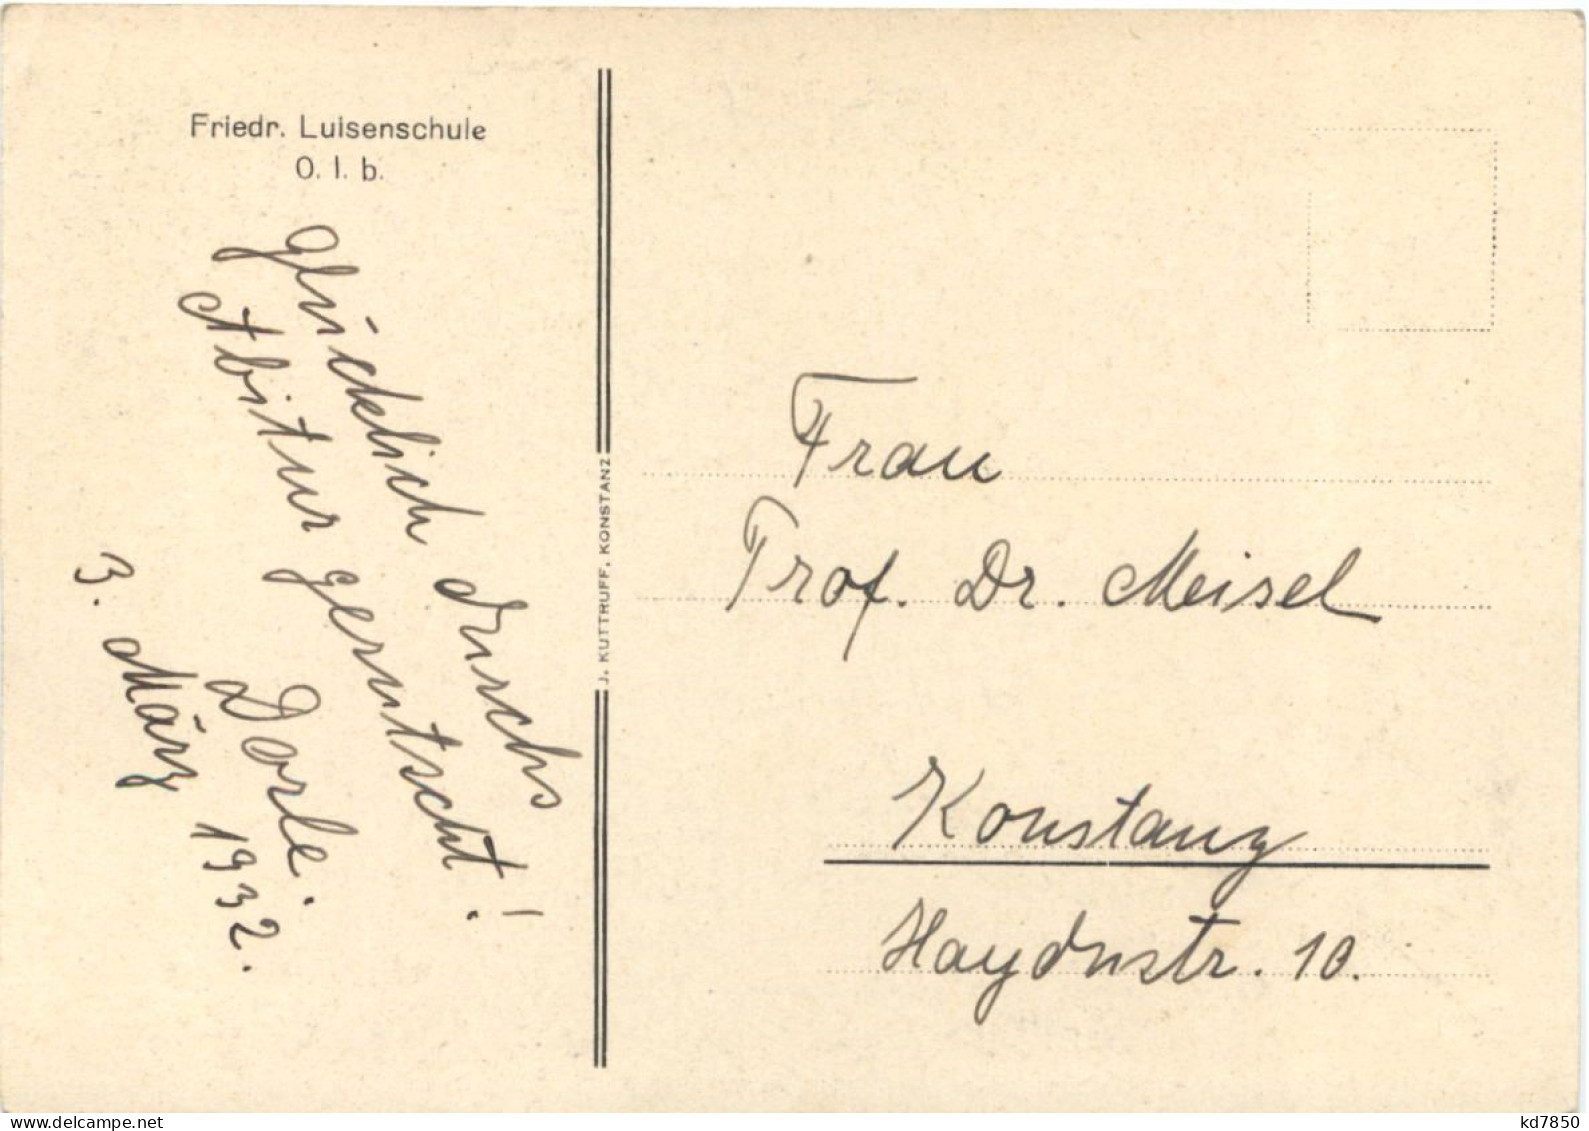 Friedr. Luisenschule
O. I. b.
glücklich durchs
Abitur gerutscht!
Dorle.
3. März 1932.
J. KUTTRUFF, KONSTANZ
Frau
Prof. Dr. Meisel
Konstanz
Haydnstr. 10.
www.delcampe.net
kd7850